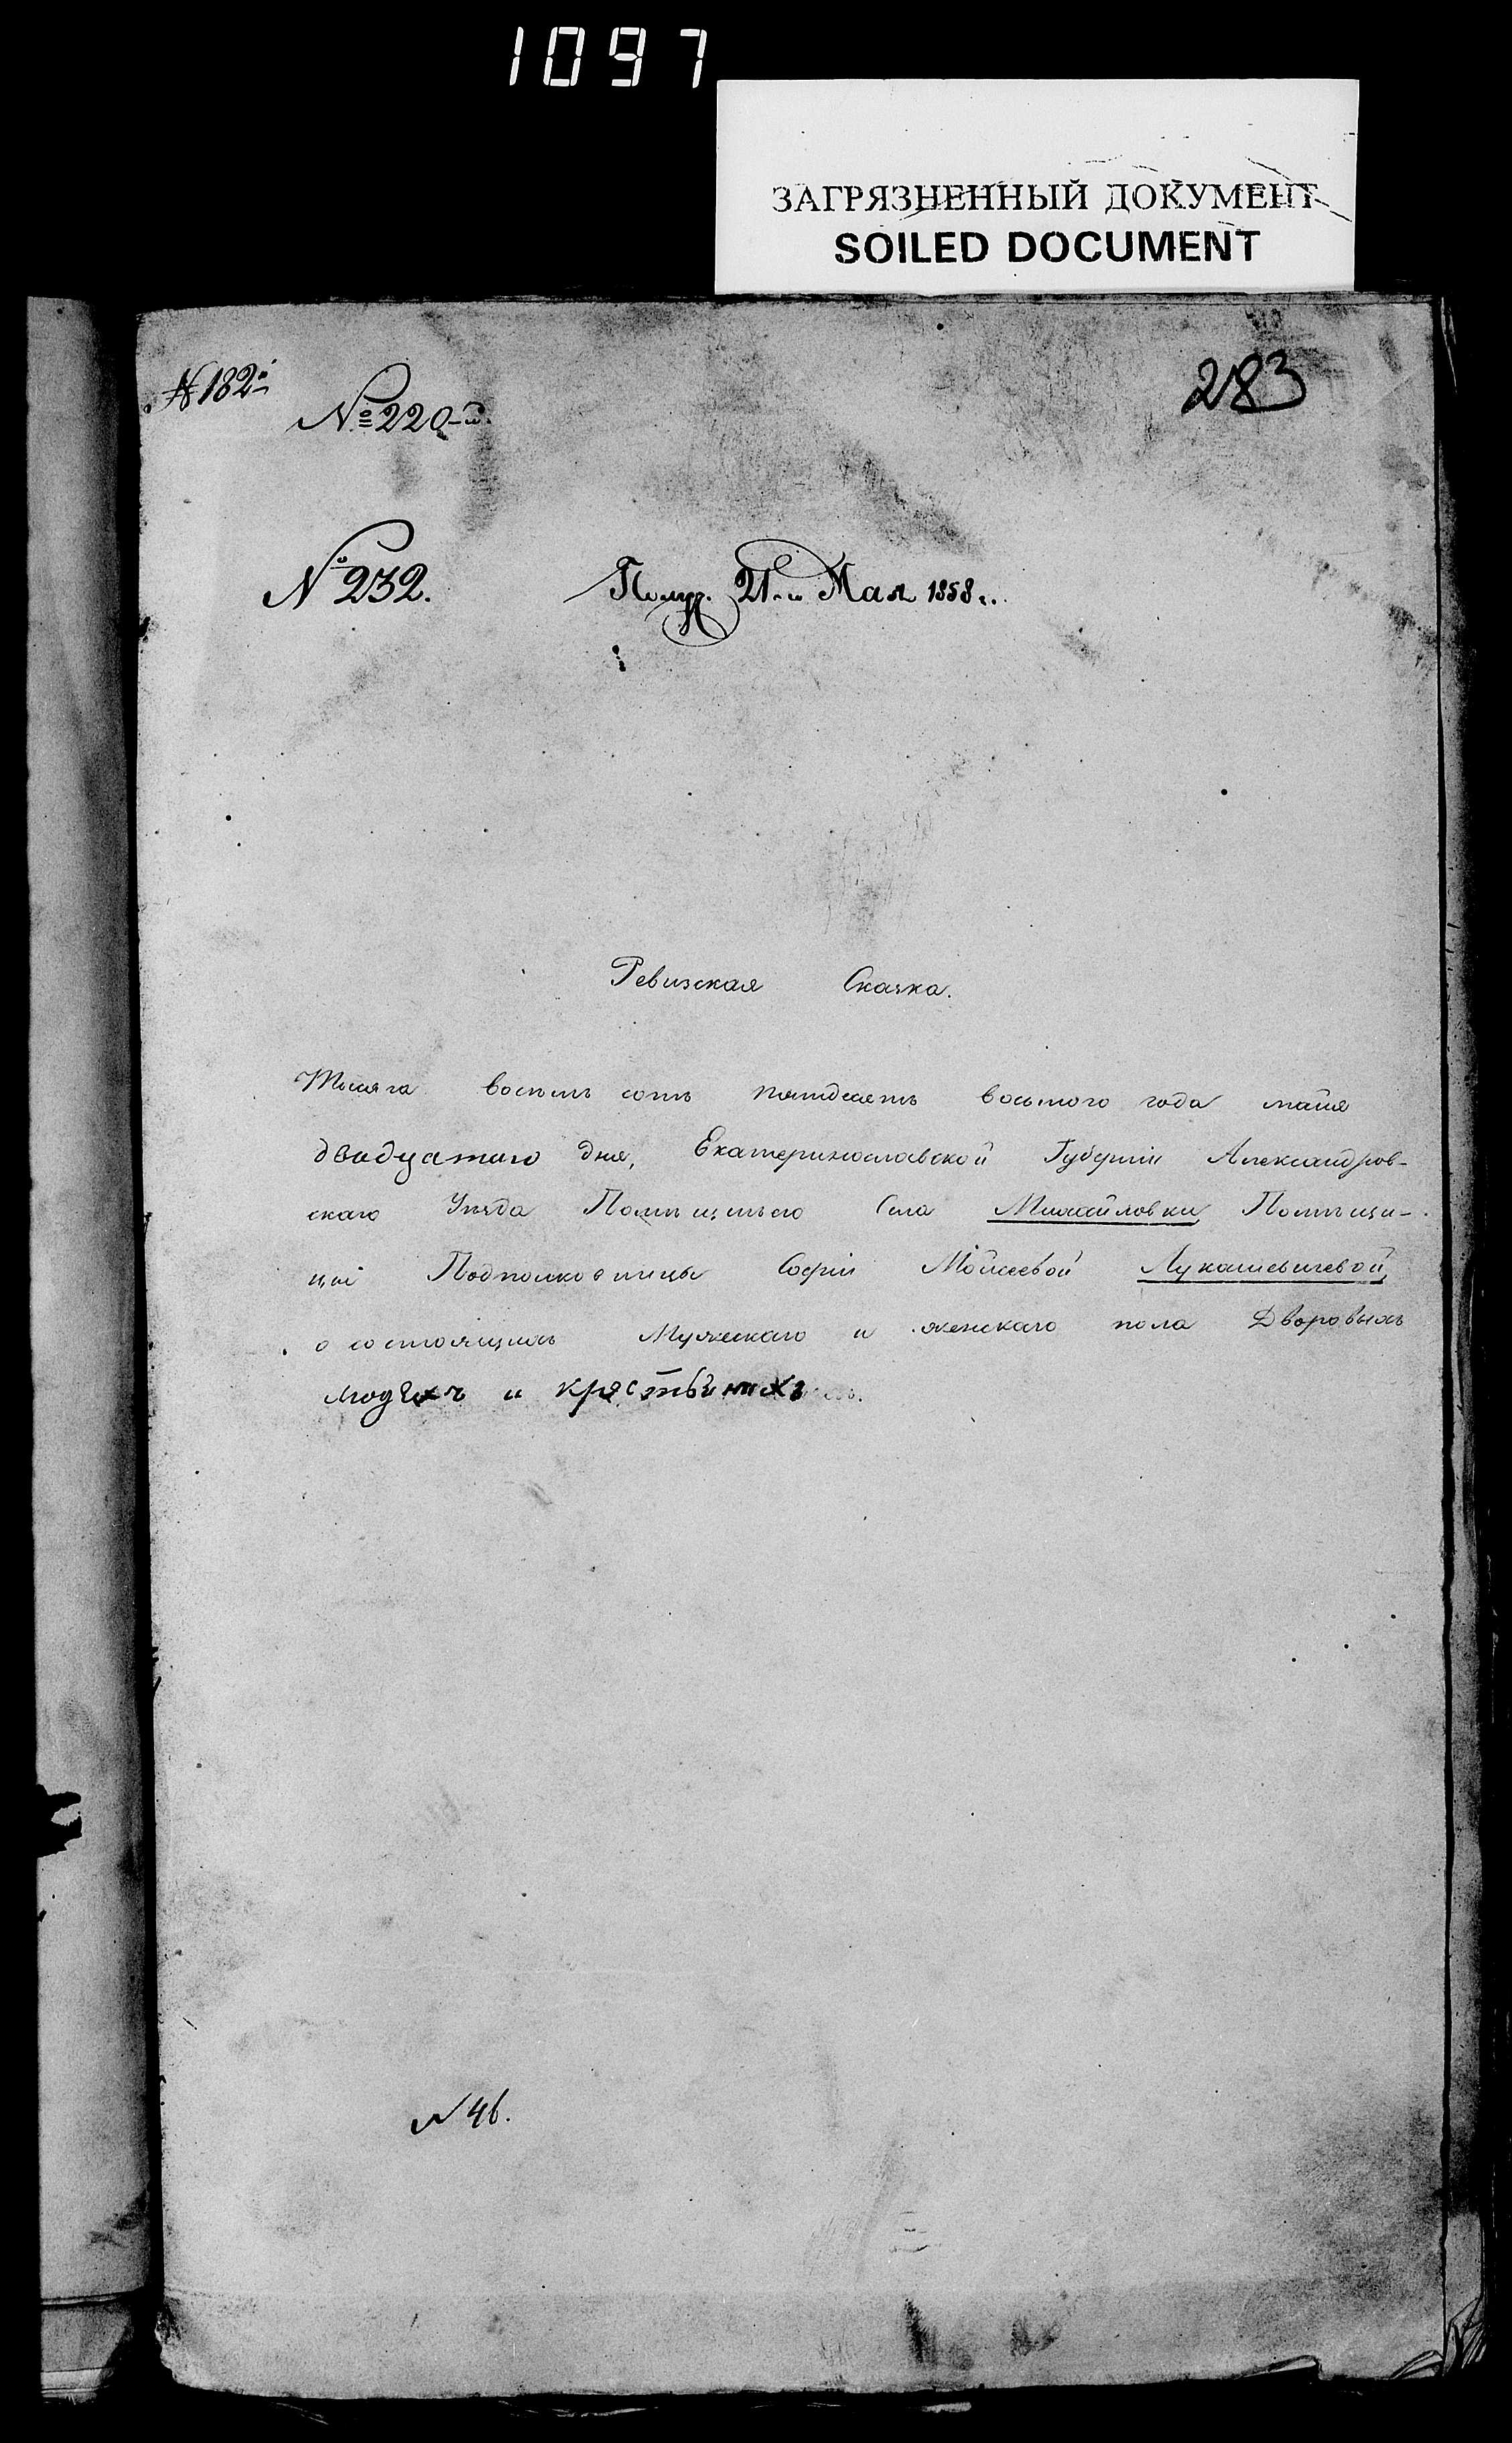 1097
ЗАГРЯЗНЕННЫЙ ДОКУМЕНТ
SOILED DOCUMENT
№ 182й
283
№ 220-й.
№ 232.
Получ. 21-го Мая 1858 г.
Ревизская Сказка.
Тысяча восемь сотъ пятдесятъ восьмого года маия
двадцатого дня, Екатеринославской Губерніи Александров-
скаго Уезда Помѣщичьяго Села Михайловки Помѣщи-
цы Подполковницы Софіи Мойсеевой Лукашевичевой,
о состоящихъ Мужескаго и женскаго пола Дворовыхъ
людехъ и крестьянихъ
N 46.